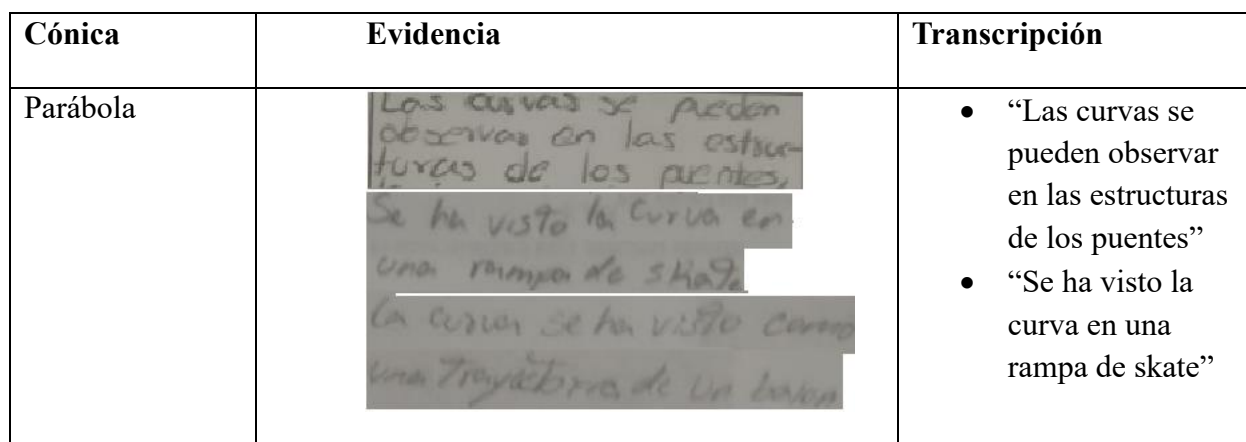 Cónica
Evidencia
Transcripción
Parábola
Las curvas se pueden
observar en las estruc-
turas de los puentes,
Se ha visto la curva en
una rampa de skate
La curva se ha visto como
una trayectoria de un balon
● “Las curvas se
pueden observar
en las estructuras
de los puentes”
● “Se ha visto la
curva en una
rampa de skate”